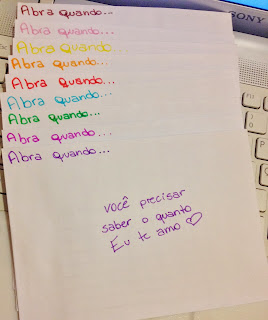 Abra quando...
Abra quando...
Abra quando...
Abra quando...
Abra quando...
Abra quando...
Abra quando...
Abra quando...
Abra quando...
você precisar
saber o quanto
Eu te amo ♡
SONY